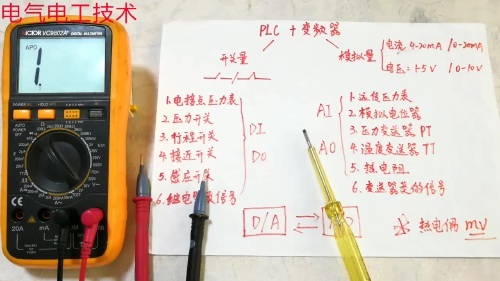 电气电工技术
VICTOR VC9802A+
DIGITAL MULTIMETER
APO
1
POWER
20A
mA
PLC + 变频器
开关量
模拟量
电流 4-20mA / 0-20mA
电压 1-5V / 0-10V
1. 电接点压力表
2. 压力开关
3. 行程开关
4. 接近开关
5. 感应开关
6. 继电器 信号
DI
DO
AI
AO
1. 远传压力表
2. 模拟电位器
3. 压力变送器 PT
4. 温度变送器 TT
5. 热电阻
6. 变送器类的信号
D/A
热电偶 mV